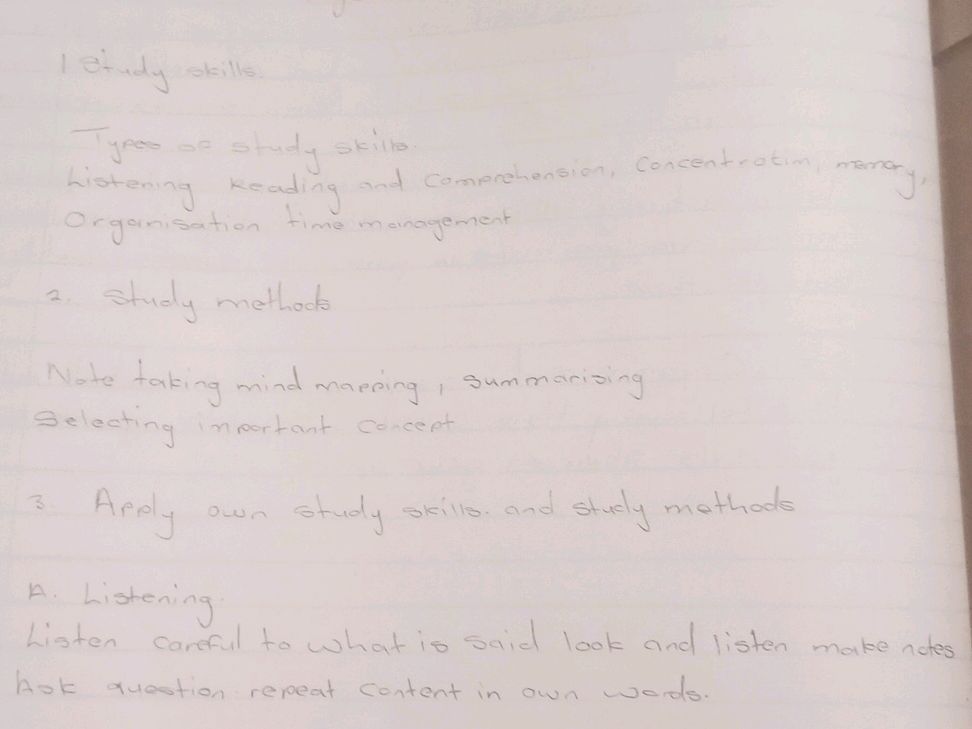 1 Study skills.
Types of study skills.
Listening Reading and Comprehension, Concentration, memory,
Organisation time management
2. Study methods
Note taking mind mapping, summarising
Selecting important concept
3. Apply own study skills. and study methods
A. Listening.
Listen careful to what is said look and listen make notes
Ask question repeat content in own words.